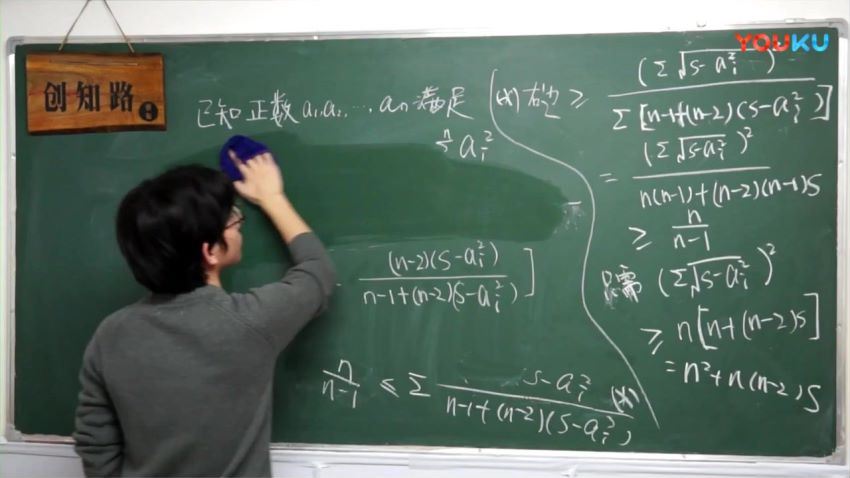 YOUKU
创知路
已知正数 a₁,a₂,…,aₙ 满足
aᵢ²
(n-2)(S-aᵢ²) / n-1+(n-2)(S-aᵢ²) ]
n/(n-1) ≤ Σ S-aᵢ² / n-1+(n-2)(S-aᵢ²) (*)
(*) 右边 ≥ (Σ√S-aᵢ²)² / Σ[n-1+(n-2)(S-aᵢ²)]
= (Σ√S-aᵢ²)² / n(n-1)+(n-2)(n-1)S
≥ n/(n-1)
只需 (Σ√S-aᵢ²)²
≥ n[n+(n-2)S]
= n²+n(n-2)S